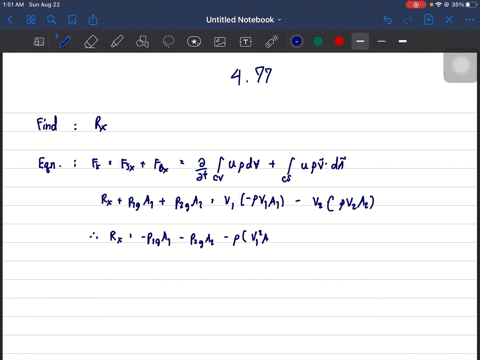 1:51 AM Sun Aug 22
35%
Untitled Notebook
4.77
Find : Rx
Eqn. : Fx = Fsx + FBx = ∂/∂t ∫cv u ρ dV + ∫cs u ρ v⃗ · dA⃗
Rx + p1g A1 + p2g A2 = V1 (-ρV1A1) - V2 (ρV2A2)
∴ Rx = -p1g A1 - p2g A2 - ρ(V1²A